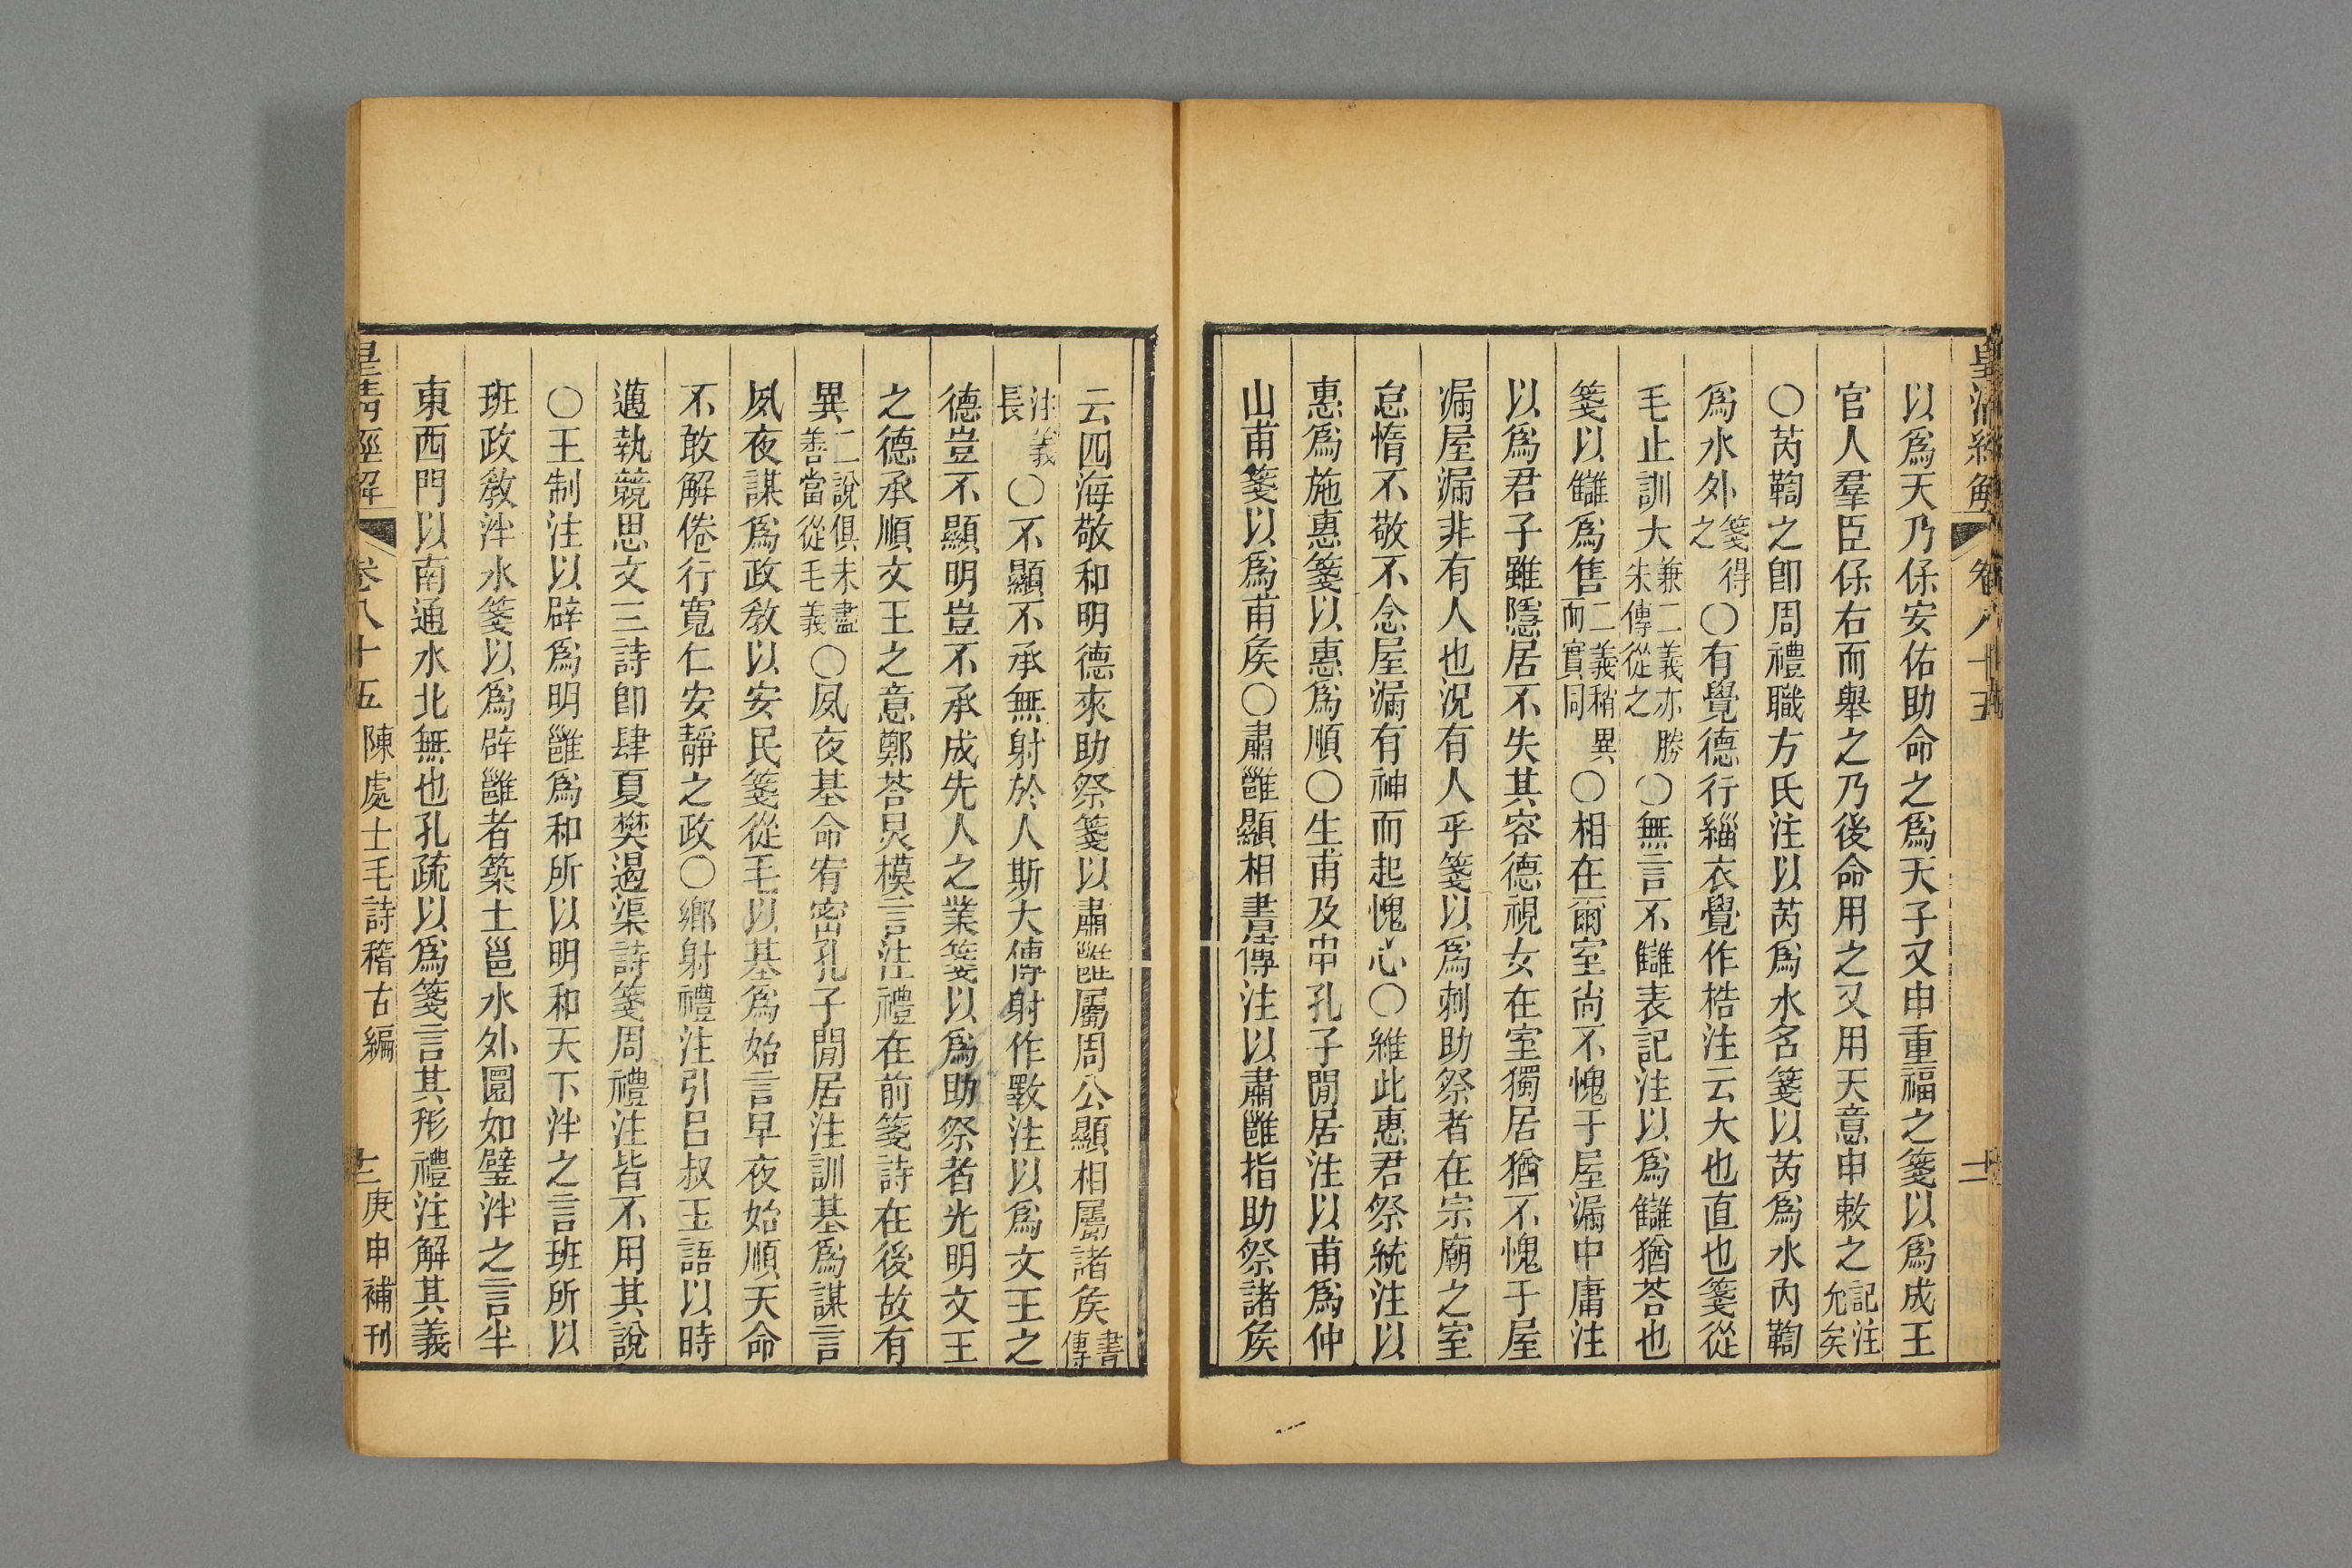 皇清經解 卷八十五
以爲天乃保安佑助命之爲天子又申重福之箋以爲成王
官人羣臣保右而舉之乃後命用之又用天意申敕之記注允矣
○芮鞫之卽周禮職方氏注以芮爲水名箋以芮爲水內鞫
爲水外箋得之○有覺德行緇衣覺作梏注云大也直也箋從
毛止訓大兼二義亦勝朱傳從之○無言不讎表記注以爲讎猶荅也
箋以讎爲售二義稍異而實同○相在爾室尚不愧于屋漏中庸注
以爲君子雖隱居不失其容德視女在室獨居猶不愧于屋
漏屋漏非有人也況有人乎箋以爲刺助祭者在宗廟之室
怠惰不敬不念屋漏有神而起愧心○維此惠君祭統注以
惠爲施惠箋以惠爲順○生甫及申孔子閒居注以甫爲仲
山甫箋以爲甫矦○肅雝顯相書大傳注以肅雝指助祭諸矦
云四海敬和明德來助祭箋以肅雝屬周公顯相屬諸矦書傳
注義長○不顯不承無射於人斯大傳射作斁注以爲文王之
德豈不顯明豈不承成先人之業箋以爲助祭者光明文王
之德承順文王之意鄭荅炅模言注禮在前箋詩在後故有
異二說俱未盡善當從毛義○夙夜基命宥密孔子閒居注訓基爲謀言
夙夜謀爲政敎以安民箋從毛以基爲始言早夜始順天命
不敢解倦行寬仁安靜之政○鄉射禮注引呂叔玉語以時
邁執競思文三詩卽肆夏樊遏渠詩箋周禮注皆不用其說
○王制注以辟爲明雝爲和所以明和天下泮之言班所以
班政敎泮水箋以爲辟雝者築土邕水外圜如璧泮之言半
東西門以南通水北無也孔疏以爲箋言其形禮注解其義
皇清經解 卷八十五 陳處士毛詩稽古編 庚申補刊